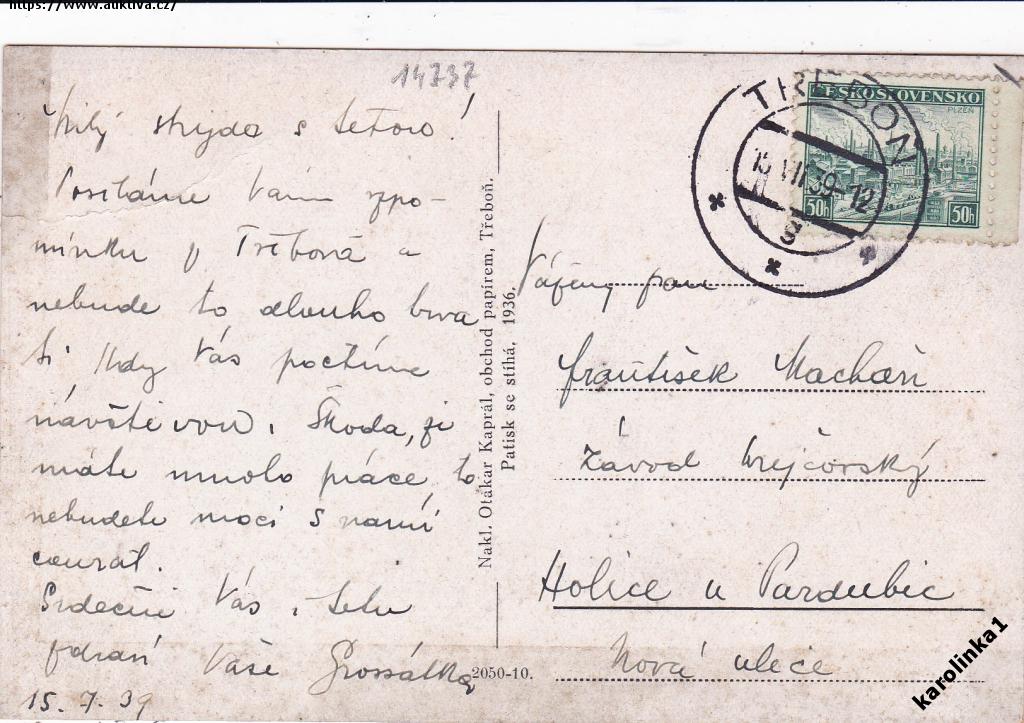 https://www.auktiva.cz/
14737
Milý strýdo s tetou!
Posíláme Vám vzpo-
mínku z Třeboně a
nebude to dlouho trva
ti kdy Vás poctíme
návštěvou. Škoda, že
máte mnoho práce, to
nebudete moci s námi
courat.
Srdečně Vás i tetu
zdraví Vaše
15. 7. 39
Nakl. Otákar Kaprál, obchod papírem, Třeboň.
Patisk se stíhá, 1936.
2050-10.
TŘEBOŇ
15 VII 39-12
g
ČESKOSLOVENSKO
PLZEŇ
50h 50h
Vážený pan
František Machač
Závod krejčovský
Holice u Pardubic
Nová ulice
karolinka1